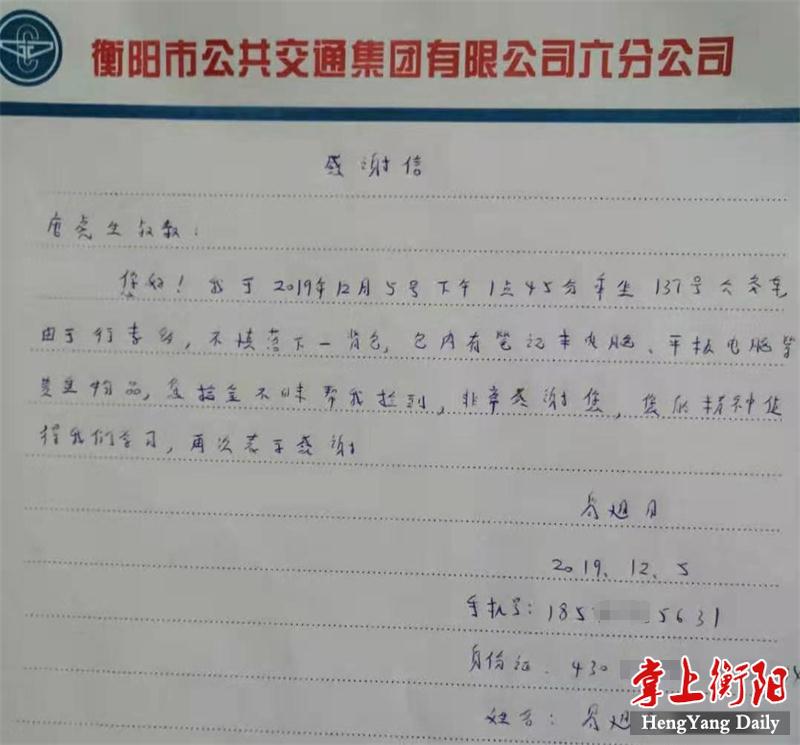 衡阳市公共交通集团有限公司六分公司
感谢信
唐尧生叔叔:
您好!我于2019年12月5号下午1点45分乘坐137号公交车
由于行李多,不慎落下一背包,包内有笔记本电脑、平板电脑等
贵重物品,您拾金不昧帮我捡到,非常感谢您,您的精神值
得我们学习,再次表示感谢
旭日
2019.12.5
手机号:185 5631
身份证.430
姓名:
掌上衡阳
HengYang Daily